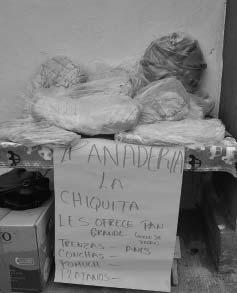 PANADERIA
LA
CHIQUITA
LES OFRECE PAN
GRANDE
TRENZAS - ANIS
CONCHAS -
POMUCH -
PLATANOS -